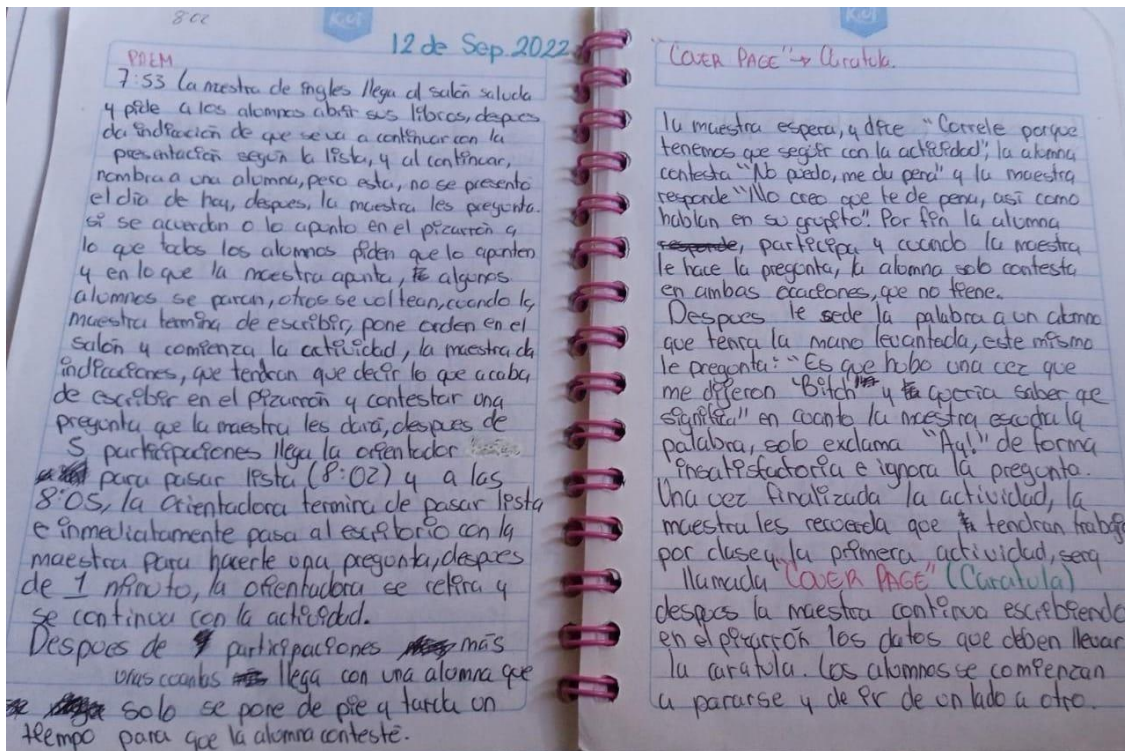 Kiut
12 de Sep. 2022
PREM
7:53 La mestra de ingles llega al salón saluda
y pide a los alomnos abrir sus libros, despues
da indicación de que se va a continuar con la
presentación según la lista, y al continuar,
nombra a una alomna, pero esta, no se presento
el día de hoy, despues, la muestra les pregunta.
si se acuerdan o lo apunto en el pizarrón a
lo que todos los alomnos piden que lo apunten
y en lo que la maestra apunta, algunos
alumnos se paran, otros se voltean, cuando la
maestra termina de escribir, pone orden en el
salón y comienza la actividad, la maestra da
indicaciones, que tendran que decir lo que acaba
de escriber en el pizarrón y contestar una
pregunta que la maestra les dará, despues de
5 participaciones llega la orientador
para pasar lista (8:02) y a las
8:05, la orientadora termina de pasar lista
e inmediatamente pasa al escritorio con la
maestra para hacerle una pregunta, despues
de 1 minuto, la orientadora se retira y
se continua con la actividad.
Despues de participaciones más
unas cuantas llega con una alomna que
solo se pone de pie y tarda un
tiempo para que la alomna conteste.
Kiut
"COVER PAGE" → Caratula.
la muestra espera, y dice "Correle porque
tenemos que seguir con la actividad", la alomna
contesta "No puedo, me da pena" y la maestra
responde "No creo que te de pena, así como
hablan en su grupito". Por fin la alumna
participa y cuando la maestra
le hace la pregunta, la alomna solo contesta
en ambas ocaciones, que no tiene.
Despues le sede la palabra a un alomno
que tenia la mano levantada, este mismo
le pregunta: "Es que hubo una vez que
me dijeron "Bitch" y queria saber qe
significa" en cuanto la maestra escucha la
palabra, solo exclama "Ay!" de forma
insatisfactoria e ignora la pregunta.
Una vez finalizada la actividad, la
maestra les recuerda que tendran trabajo
por clase y la primera actividad, sera
llamada "COVER PAGE" (Caratula)
despues la maestra continua escribiendo
en el pizarrón los datos que deben llevar
la caratula. Los alomnos se comienzan
a pararse y de ir de un lado a otro.